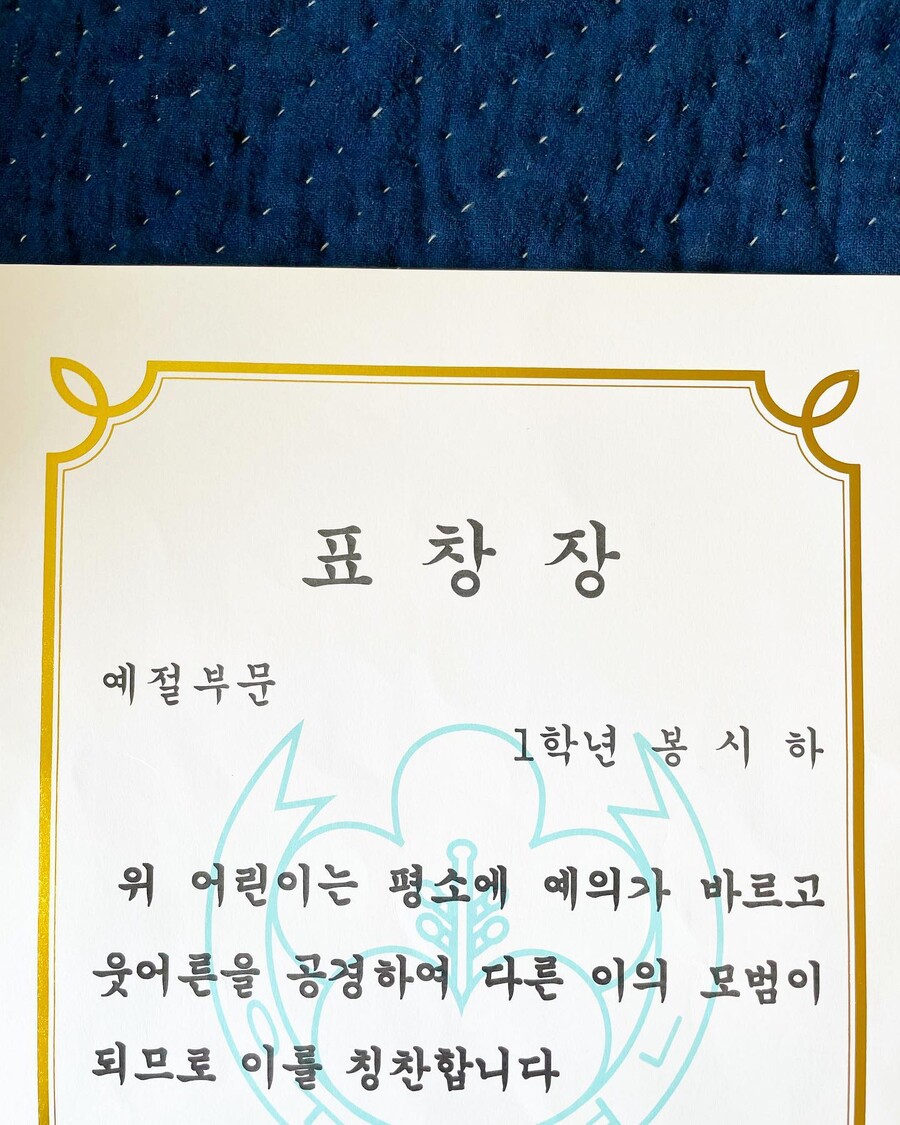 표 창 장
예절부문
1학년 봉 시 하
위 어린이는 평소에 예의가 바르고
웃어른을 공경하여 다른 이의 모범이
되므로 이를 칭찬합니다